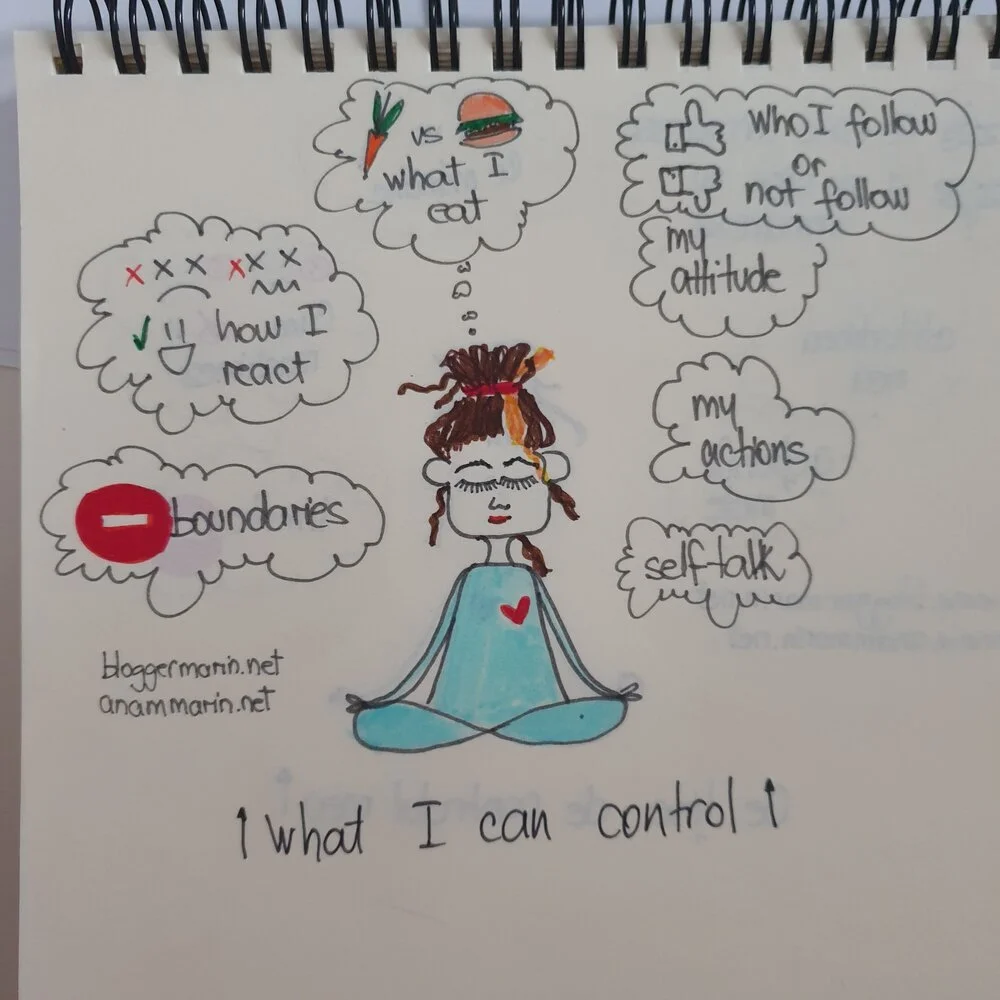 vs
what I
eat
who I follow
or
not follow
my
attitude
how I
react
my
actions
boundaries
self-talk
bloggermarin.net
anammarin.net
what I can control